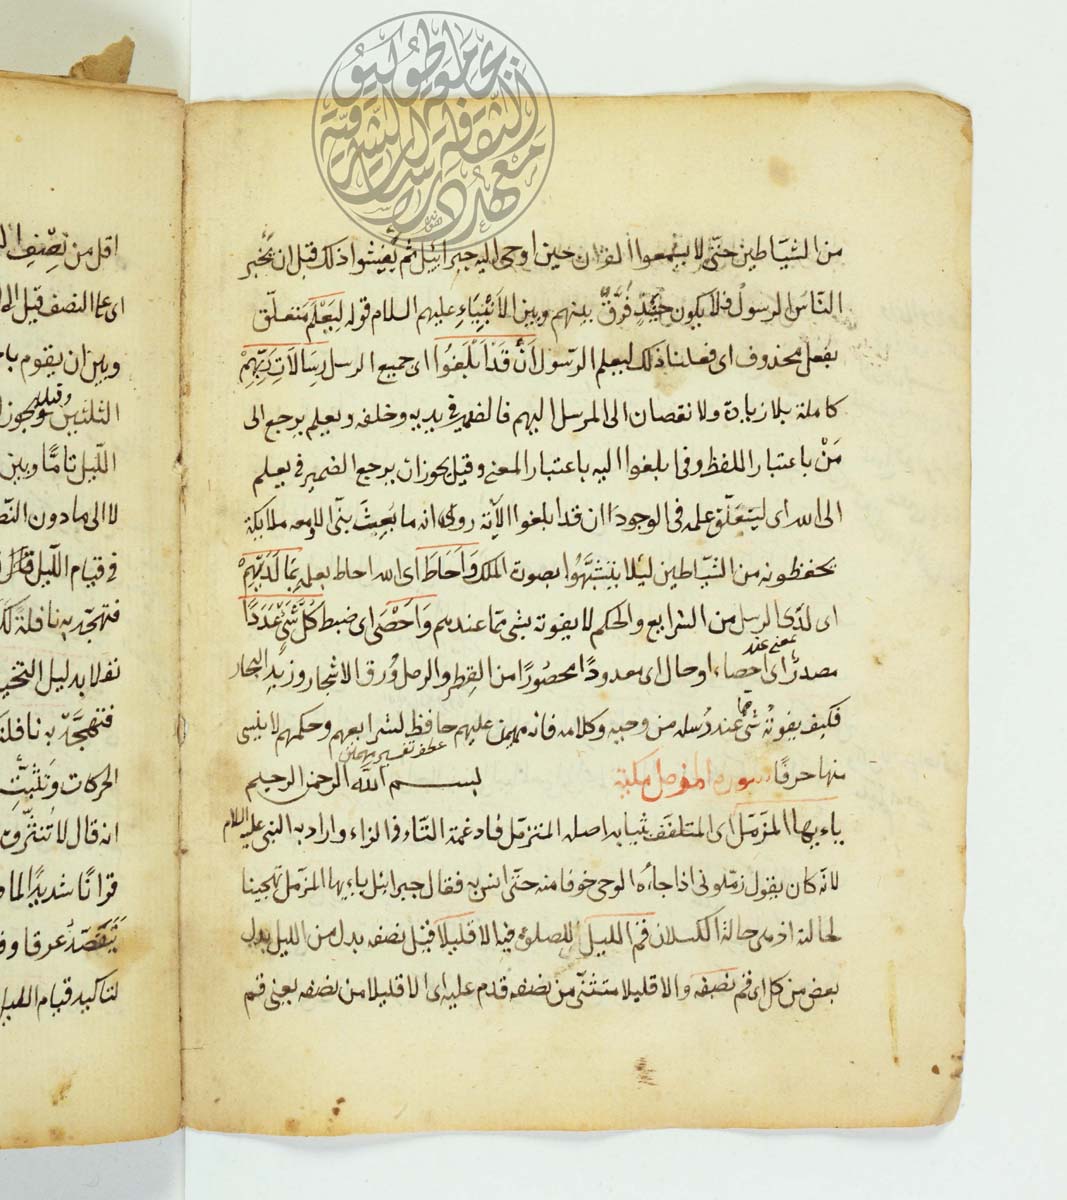 من الشياطين حتى لا يسمعوا القرآن حين اوحى اليه جبرائيل ثم يفيشوا ذلك قبل ان يخبر
الناس الرسول فلا يكون حينئذ فرق بينهم وبين الأنبياء عليهم السلام قوله ليعلم متعلق
بفعل محذوف اى فعلنا ذلك ليعلم الرسول أن قد أبلغوا اى جميع الرسل رسالات ربهم
كاملة بلا زيادة ولا نقصان الى المرسل اليهم فالضمير فى يديه وخلفه ويعلم يرجع الى
من باعتبار اللفظ وفى ابلغوا اليه باعتبار المعنى وقيل يجوز ان يرجع الضمير فى يعلم
الى الله اى ليتعلق علمه فى الوجود ان قد ابلغوا الآية روى انه ما بعث نبى الا ومعه ملائكة
يحفظونه من الشياطين لئلا يتشبهوا بصورة الملك وأحاط اى الله احاط بعلمه بما لديهم
اى لدى الرسل من الشرايع والحكم لا يفوته شئ مما عندهم وأحصى اى ضبط كل شئ عددا
بمعنى عد
مصدر اى احصاء او حال اى معدودا محصورا من القطر والرمل وورق الاشجار وزبد البحار
فكيف يفوته شئ مما عند رسله من وحيه وكلامه فانه مهيمن عليهم حافظ لشرايعهم وحكمهم لا ينسى
عطف تفسير مهيمن
منها حرفا سورة المزمل مكية بسم الله الرحمن الرحيم
ياءيها المزمل اى المتلفف بثيابه اصله المتزمل فادغمة التاء فى الزاء واراد به النبى عليه السلام
لانه كان يقول زملونى اذا جاءه الوحى خوفا منه حتى انس به فقال جبرائيل ياءيها المزمل تهجينا
لحالته اذ هى حالة الكسلان قم الليل للصلوة فيه الا قليلا قيل نصفه بدل من الليل بدل
بعض من كل اى قم نصفه والا قليلا مستثنى من نصفه قدم عليه اى الا قليلا من نصفه يعنى قم
اقل من نصف
اى على النصف قيل
وبين ان يقوم
وقيله
الثلثين يجوز
الليل تاما وبين
لا الى ما دون
فى قيام الليل
فتهجد به نافلة
نفلا بدليل
فتهجد به نافلة
الحركات وتثبت
انه قال لا
قرآنا شديدا
عرقا
لتاكيد قيام الليل